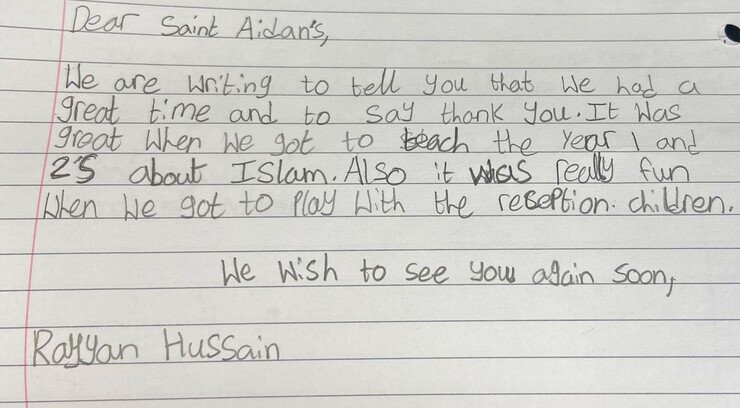 Dear Saint Aidan's,
We are writing to tell you that we had a
great time and to say thank you. It was
great when we got to teach the Year 1 and
2's about ISlam. Also it was really fun
when we got to play with the reseption. children.
We wish to see you again soon,
Rayyan Hussain